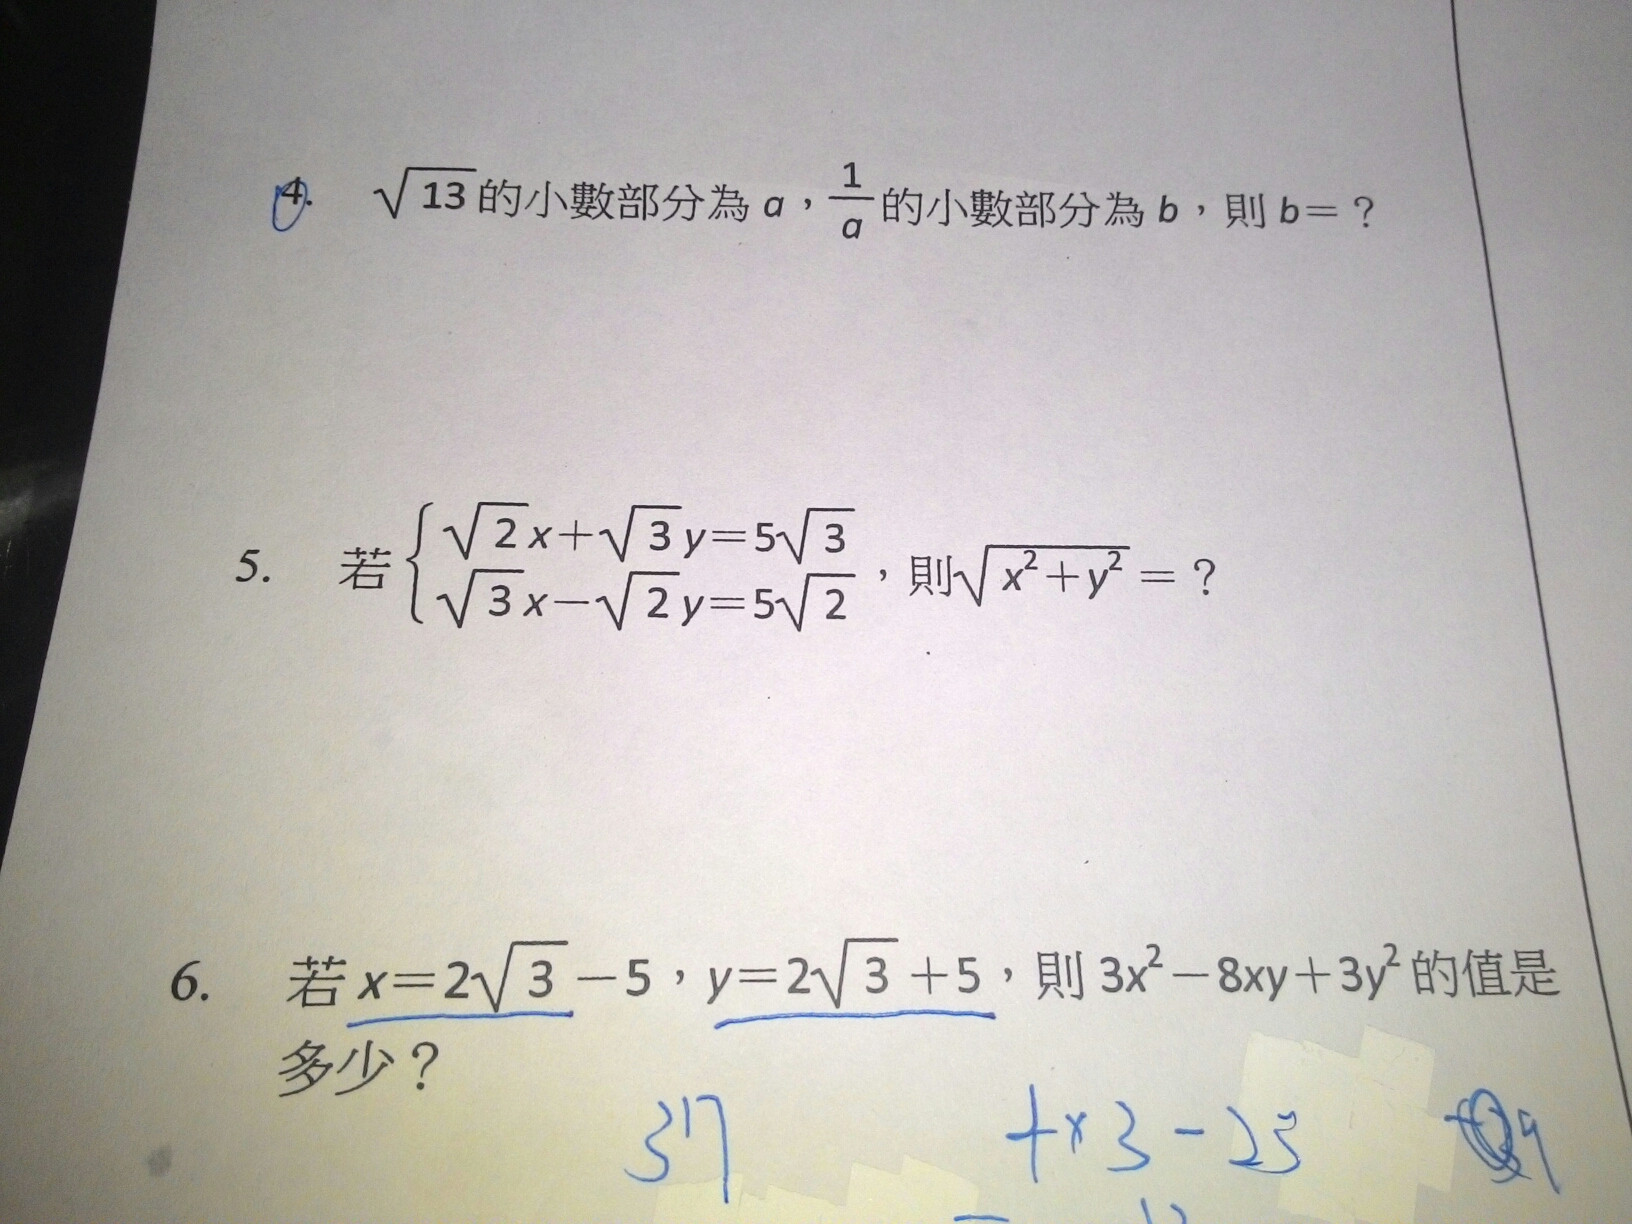 4. √13的小數部分為 a，1/a 的小數部分為 b，則 b=？
5. 若 { √2x+√3y=5√3
√3x−√2y=5√2 ，則√(x²+y²)=？
6. 若 x=2√3−5，y=2√3+5，則 3x²−8xy+3y² 的值是
多少？
317 +×3−25